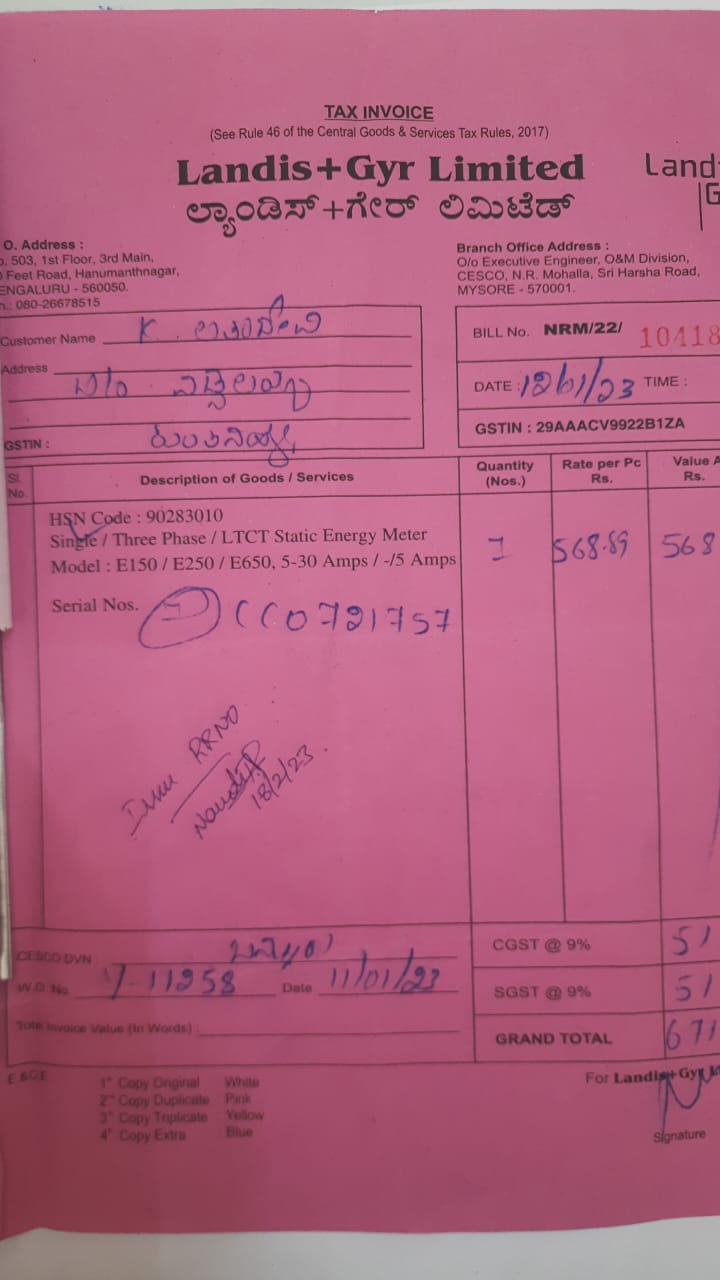 TAX INVOICE
(See Rule 46 of the Central Goods & Services Tax Rules, 2017)
Landis+Gyr Limited
Land
G
ಲ್ಯಾಂಡಿಸ್+ಗೇರ್ ಲಿಮಿಟೆಡ್
O. Address :
503, 1st Floor, 3rd Main,
Feet Road, Hanumanthnagar,
ENGALURU - 560050.
080-26678515
Branch Office Address :
O/o Executive Engineer, O&M Division,
CESCO, N.R. Mohalla, Sri Harsha Road,
MYSORE - 570001.
Customer Name K.
Address
GSTIN :
BILL No. NRM/22/ 10418
DATE : 12/01/23 TIME :
GSTIN : 29AAACV9922B1ZA
Sl. No.
Description of Goods / Services
Quantity (Nos.)
Rate per Pc Rs.
Value A
Rs.
HSN Code : 90283010
Single / Three Phase / LTCT Static Energy Meter
Model : E150 / E250 / E650, 5-30 Amps / -/5 Amps
1 568.89 568
Serial Nos. CC0721757
RRNO
18/2/23.
CESCO DVN
W.O. No. 11258 Date 11/01/23
Total Invoice Value (In Words) :
CGST @ 9% 51
SGST @ 9% 51
GRAND TOTAL 671
E & OE
1st Copy Original White
2nd Copy Duplicate Pink
3rd Copy Triplicate Yellow
4th Copy Extra Blue
For Landis+Gyr
Signature